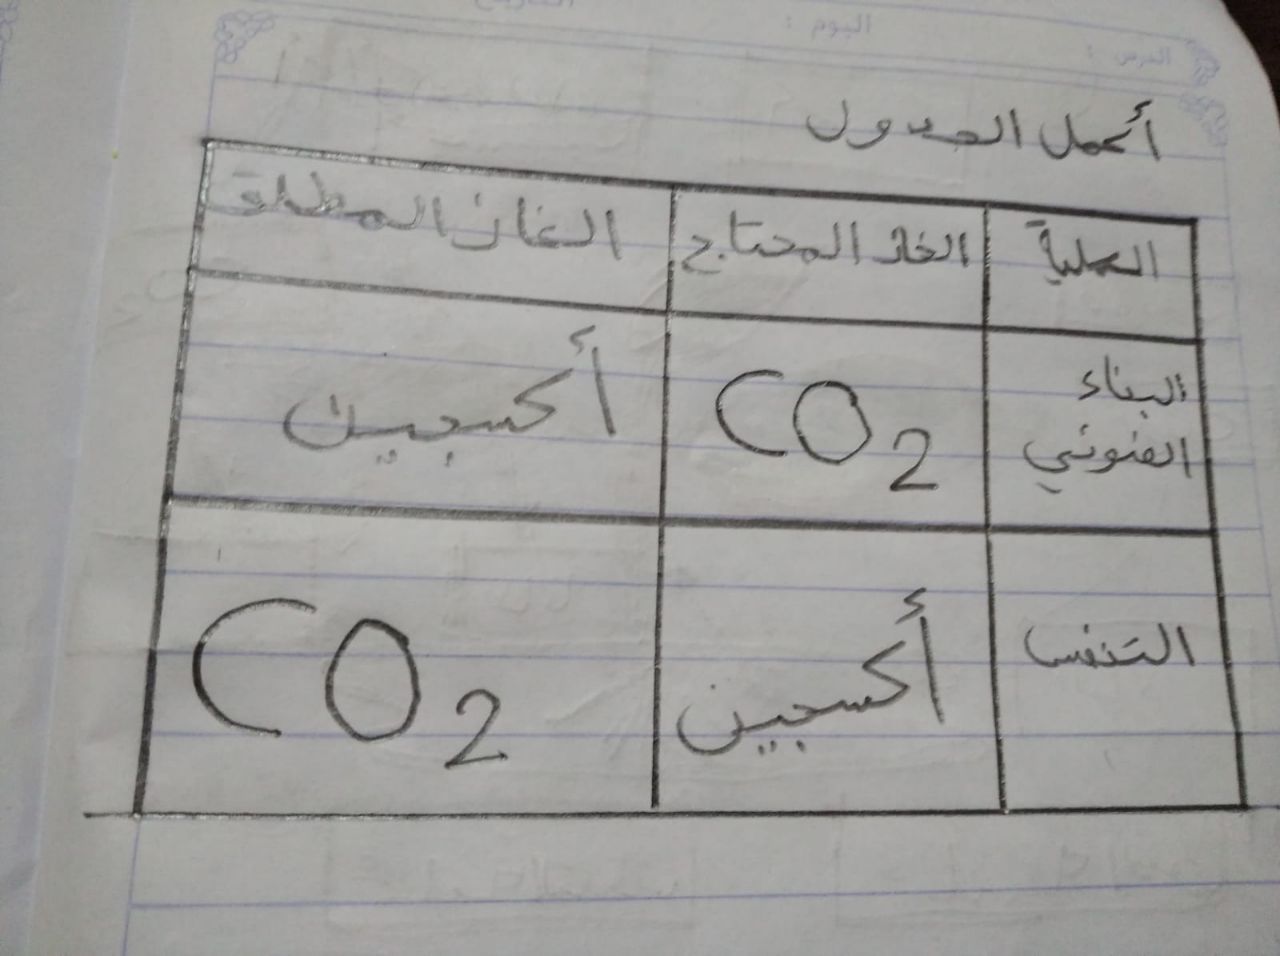 اليوم :
الدرس :
أكمل الجدول
العملية الغاز المحتاج الغاز المطلق
البناء الضوئي CO2 أكسجين
التنفس أكسجين CO2